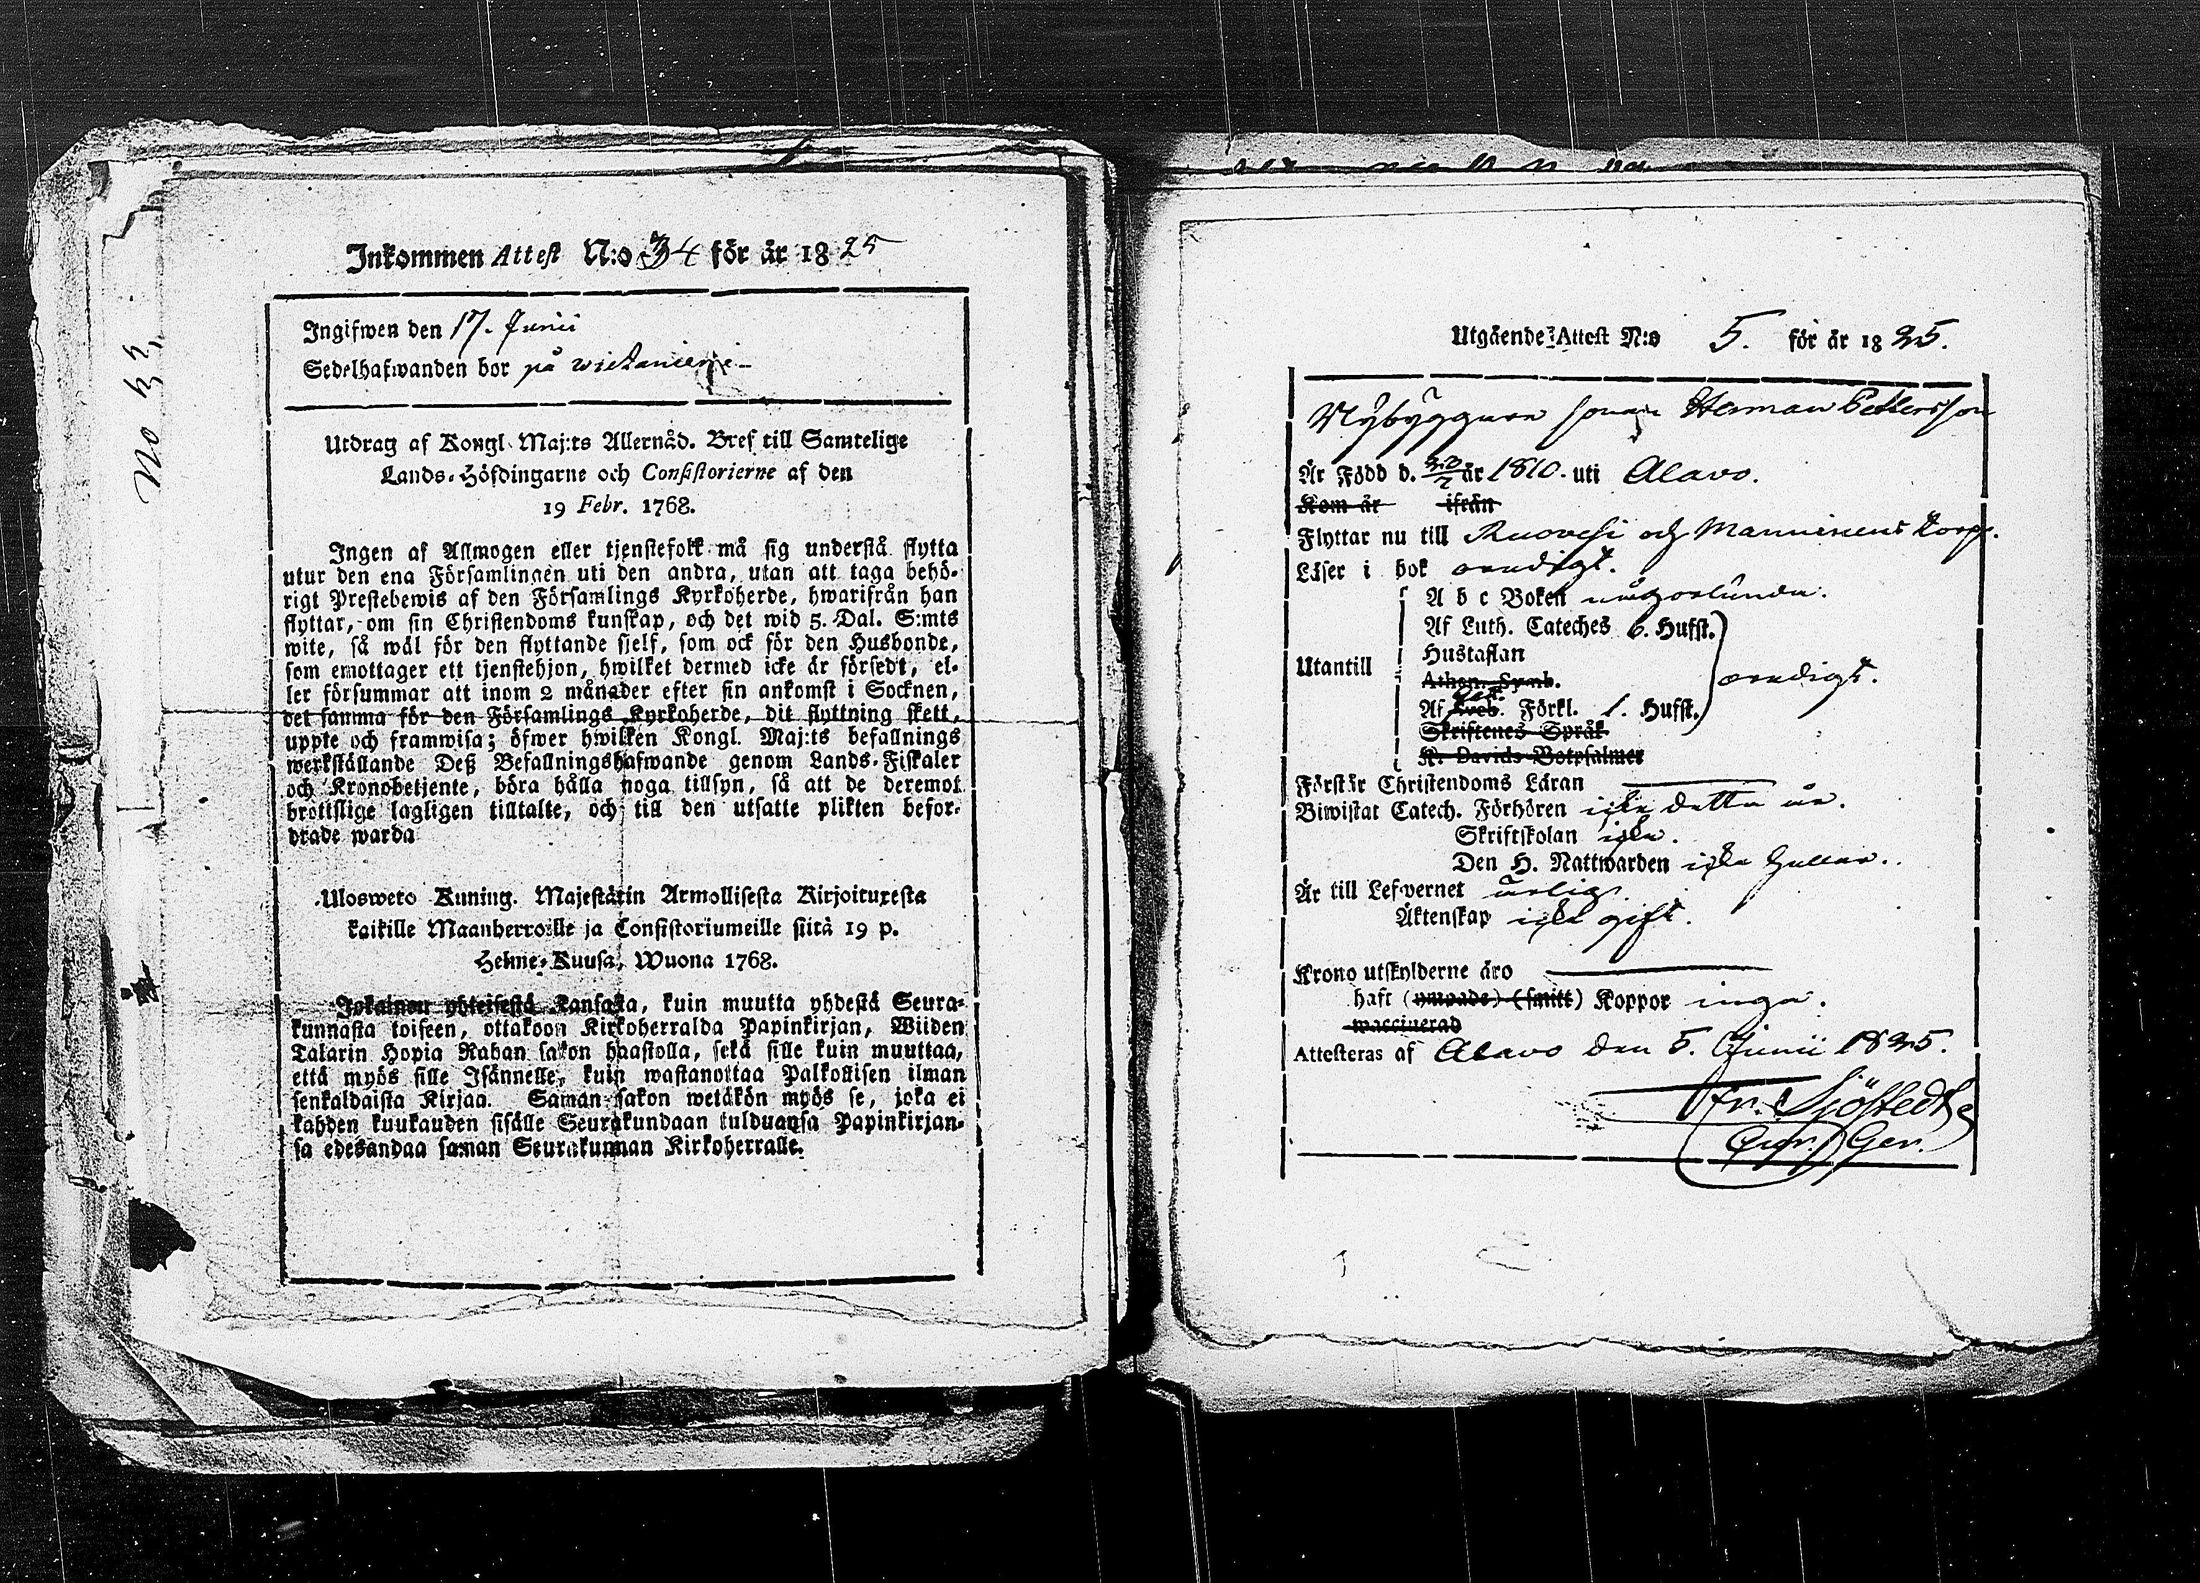 No 33,
Inkommen Attest N:o 34 för år 1825
Ingifwen den 17. Junii
Sedelhafwanden bor på
Utdrag af Kongl. Maj:ts Allernåd. Bref till Samtelige
Lands-Höfdingarne och Consistorierne af den
19 Febr. 1768.
Ingen af Allmogen eller tjenstefolk må sig understå flytta
utur den ena Församlingen uti den andra, utan att taga behö-
rigt Prestebewis af den Församlings Kyrkoherde, hwarifrån han
flyttar, om sin Christendoms kunskap, och det wid 5. Dal. S:mts
wite, så wäl för den flyttande sjelf, som ock för den Husbonde,
som emottager ett tjenstehjon, hwilket dermed icke är försedt, el-
ler försummar att inom 2 månader efter sin ankomst i Socknen,
det samma för den Församlings Kyrkoherde, dit flyttning skett,
uppte och framwisa; öfwer hwilken Kongl. Maj:ts befallnings
werkställande Deß Befallningshafwande genom Lands-Fiskaler
och Kronobetjente, böra hålla noga tillsyn, så att de deremot
brottslige lagligen tilltalte, och till den utsatte plikten befor-
drade warda
Ulosweto Kuning. Majestätin Armollisesta Kirjoituxesta
kaikille Maanherroille ja Consistoriumeille siitä 19 p.
Helme-Kuusa, Wuona 1768.
Jokainen yhteisestä Kansasta, kuin muutta yhdestä Seura-
kunnasta toiseen, ottakoon Kirkoherralda Papinkirjan, Wiiden
Talarin Hopia Rahan sakon haastolla, sekä sille kuin muuttaa,
että myös sille Isännelle, kuin wastanottaa Palkollisen ilman
senkaldaista Kirjaa. Saman sakon wetäkön myös se, joka ei
kahden kuukauden sisälle Seurakundaan tulduansa Papinkirjan-
sa edesandaa saman Seurakunnan Kirkoherralle.
Utgående Attest N:o 5. för år 1825.
Nybyggare sonen Herman Pettersson
Är Född d. 20/7 år 1810. uti Alavo.
Kom år ifrån
Flyttar nu till Ruovesi och Manninens torp.
Läser i bok owndigt.
A b c Boken någorlunda.
Af Luth. Cateches 6. Hufst.
Hustaflan
Utantill
Athan. Symb. owndigt.
Af Sveb. Förkl. 1. Hufst.
Skriftenes Språk
K. Davids Botpsalmer
Förstår Christendoms Läran
Biwistat Catech. Förhören icke detta år.
Skriftskolan icke.
Den H. Nattwarden icke heller.
Är till Lefvernet ärlig.
Äktenskap icke gift.
Krono utskylderne äro
haft (ympade) (smitt) Koppor inga.
waccinerad
Attesteras af Alavo den 5. Junii 1825.
Fr. Sjöstedt